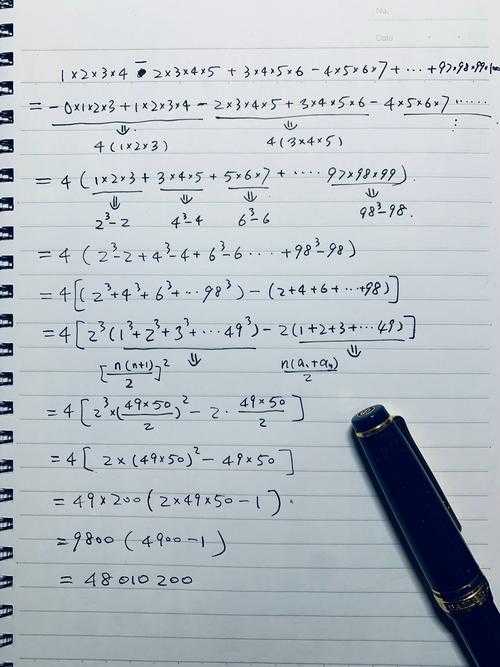 No.
Date
1×2×3×4 - 2×3×4×5 + 3×4×5×6 - 4×5×6×7 + ··· + 97×98×99×100
= -0×1×2×3 + 1×2×3×4 - 2×3×4×5 + 3×4×5×6 - 4×5×6×7 ······
⇓ ⇓ ⋮
4(1×2×3) 4(3×4×5)
= 4 (1×2×3 + 3×4×5 + 5×6×7 + ···· 97×98×99).
⇓ ⇓ ⇓ ⇓
2³-2 4³-4 6³-6 98³-98.
= 4 (2³-2+4³-4+6³-6 ···· +98³-98)
= 4[(2³+4³+6³+···98³) - (2+4+6+···+98)]
= 4[2³(1³+2³+3³+···49³) - 2(1+2+3+···49)]
⇓ ⇓
[n(n+1)/2]² n(a₁+aₙ)/2
= 4[2³×(49×50/2)² - 2·49×50/2]
= 4[2×(49×50)² - 49×50]
= 49×200(2×49×50-1).
= 9800(4900-1)
= 48010200